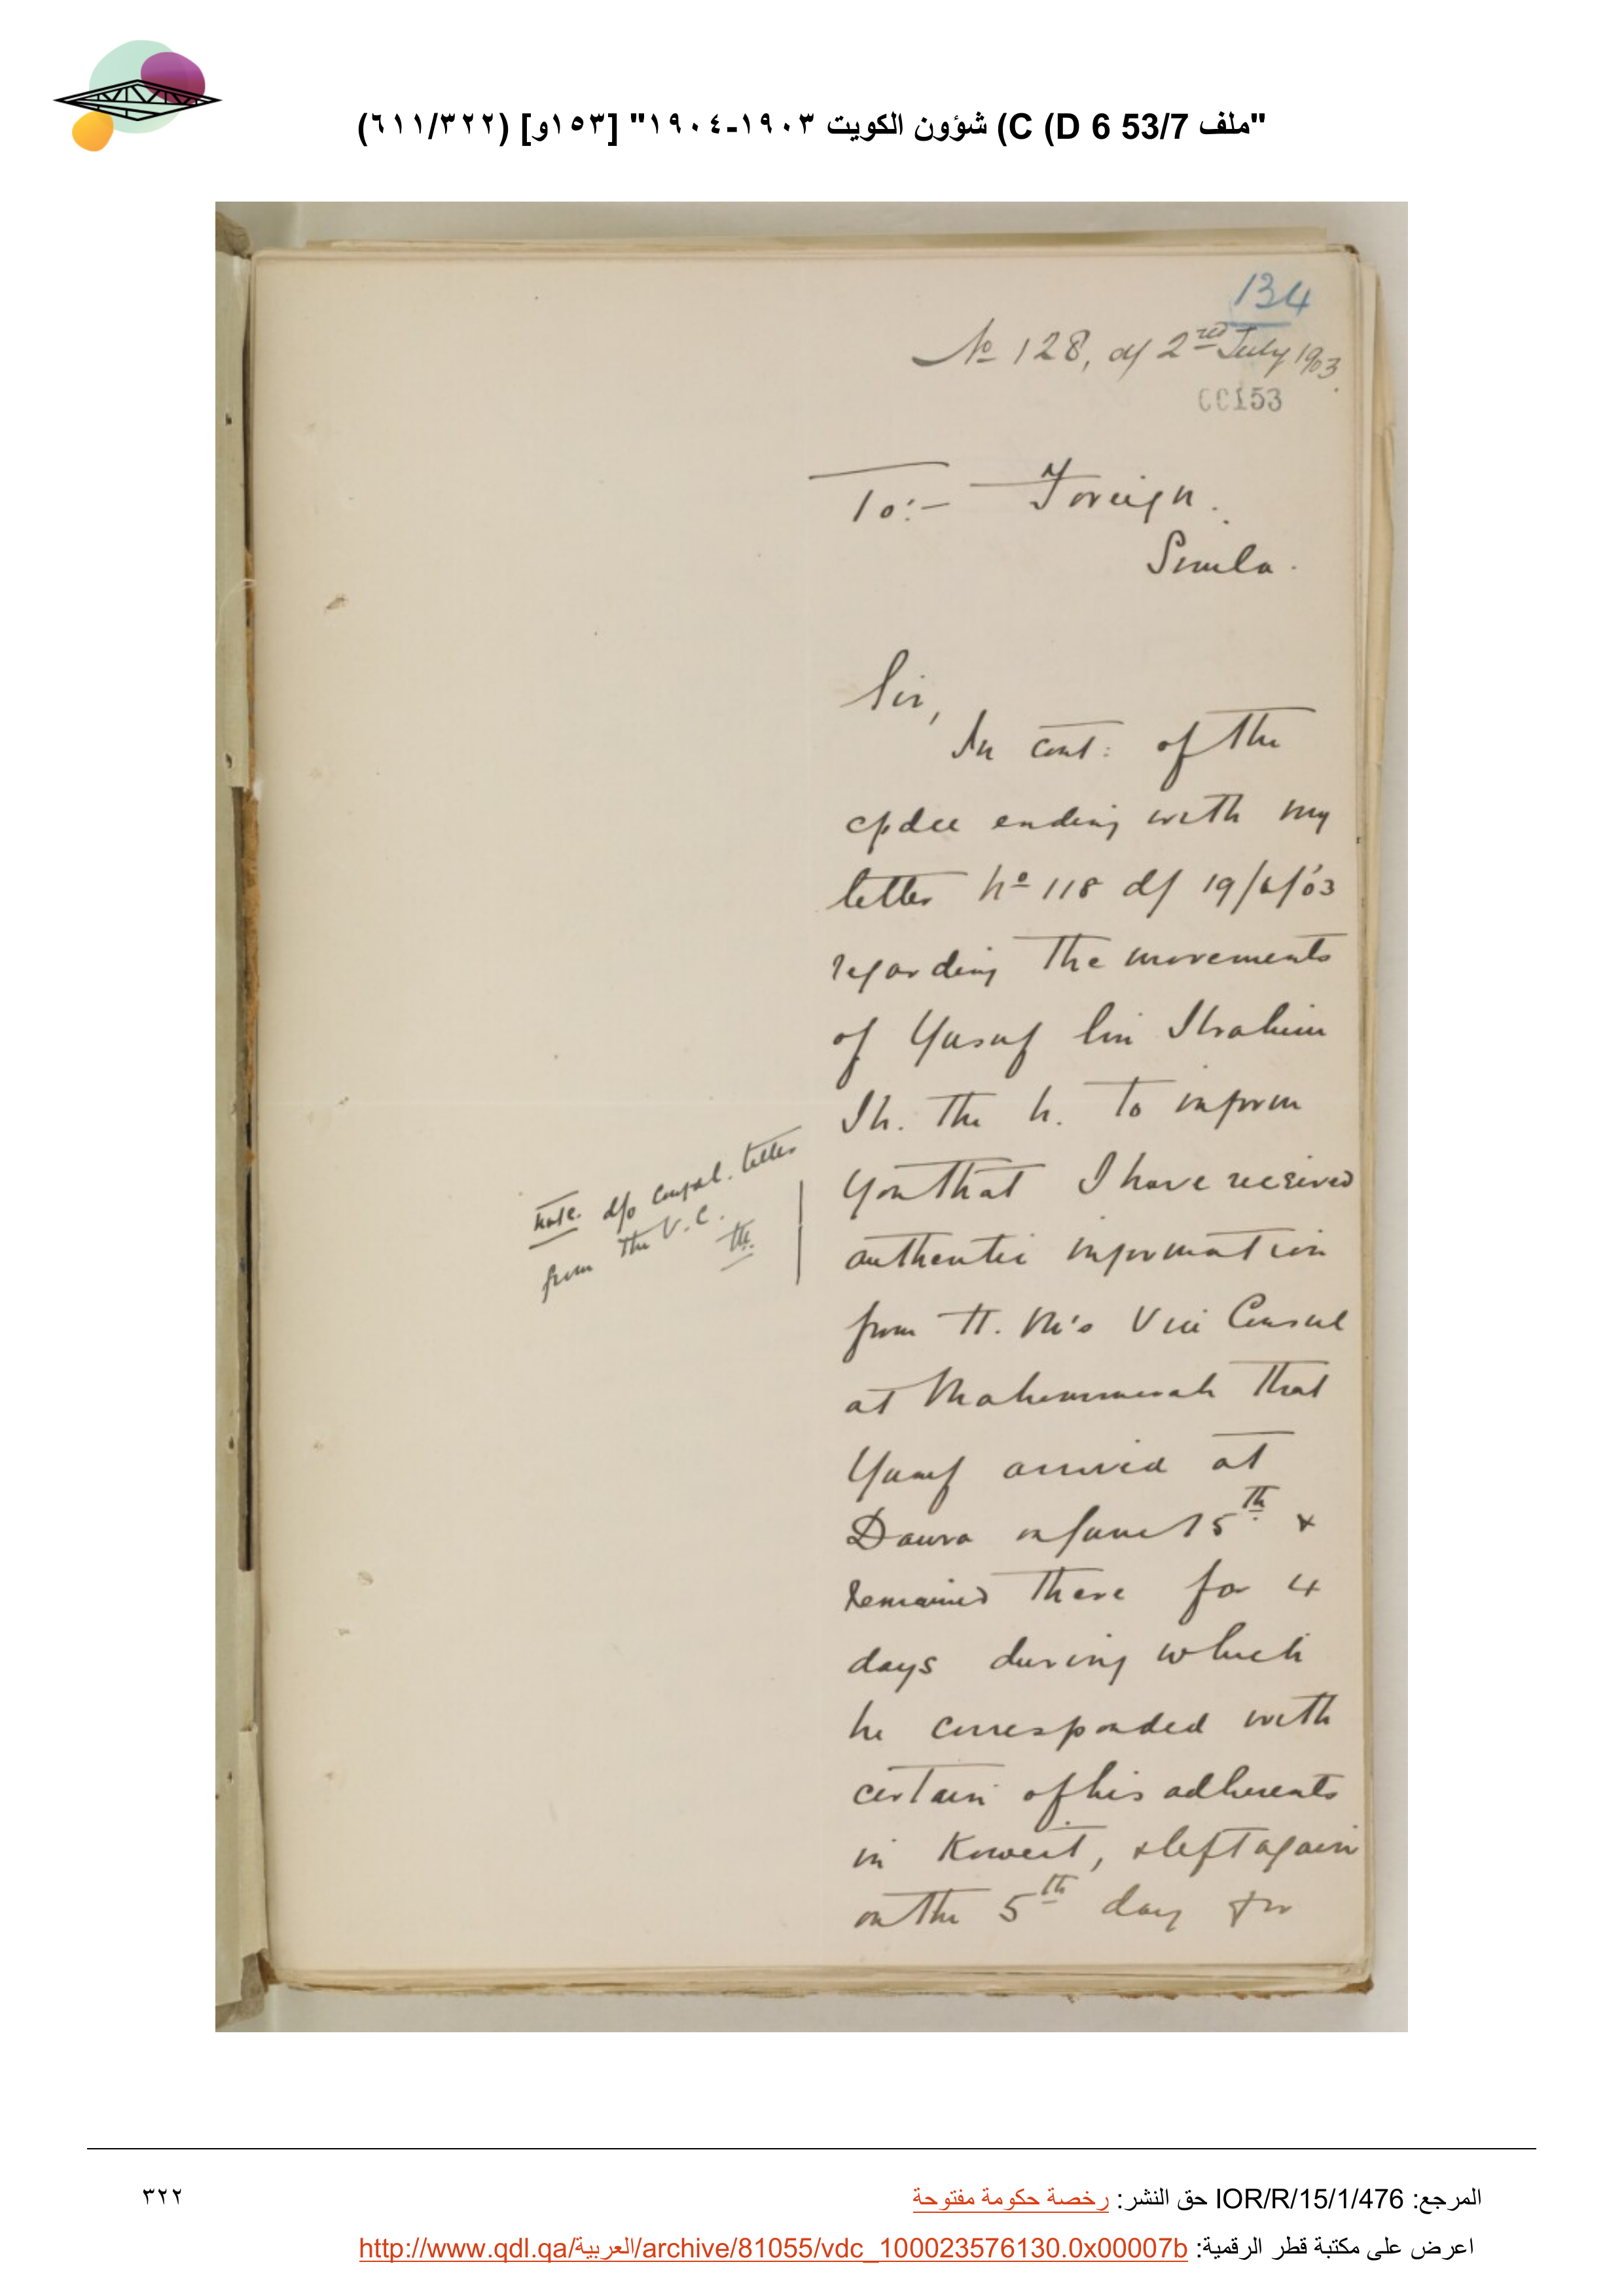 "ملف 53/7 D 6) C) شؤون الكويت ١٩٠٣-١٩٠٤" [١٥٣و] (٦١١/٣٢٢)
134
No 128, of 2nd July 1903.
00153
To:- Foreign.
Simla.
Sir,
In cont: of the
cpdce ending with my
letter No 118 d/ 19/6/03
regarding the movements
of Yusuf bin Ibrahim
I h. the h. to inform
you that I have received
authentic information
from H. M's Vice Consul
at Mohammerah that
Yusuf arrived at
Dawra on June 15th &
remained there for 4
days during which
he corresponded with
certain of his adherents
in Koweit, & left again
on the 5th day for
Note. d/o letter
from the V.C.
المرجع: IOR/R/15/1/476 حق النشر: رخصة حكومة مفتوحة
٣٢٢
اعرض على مكتبة قطر الرقمية: http://www.qdl.qa/العربية/archive/81055/vdc_100023576130.0x00007b